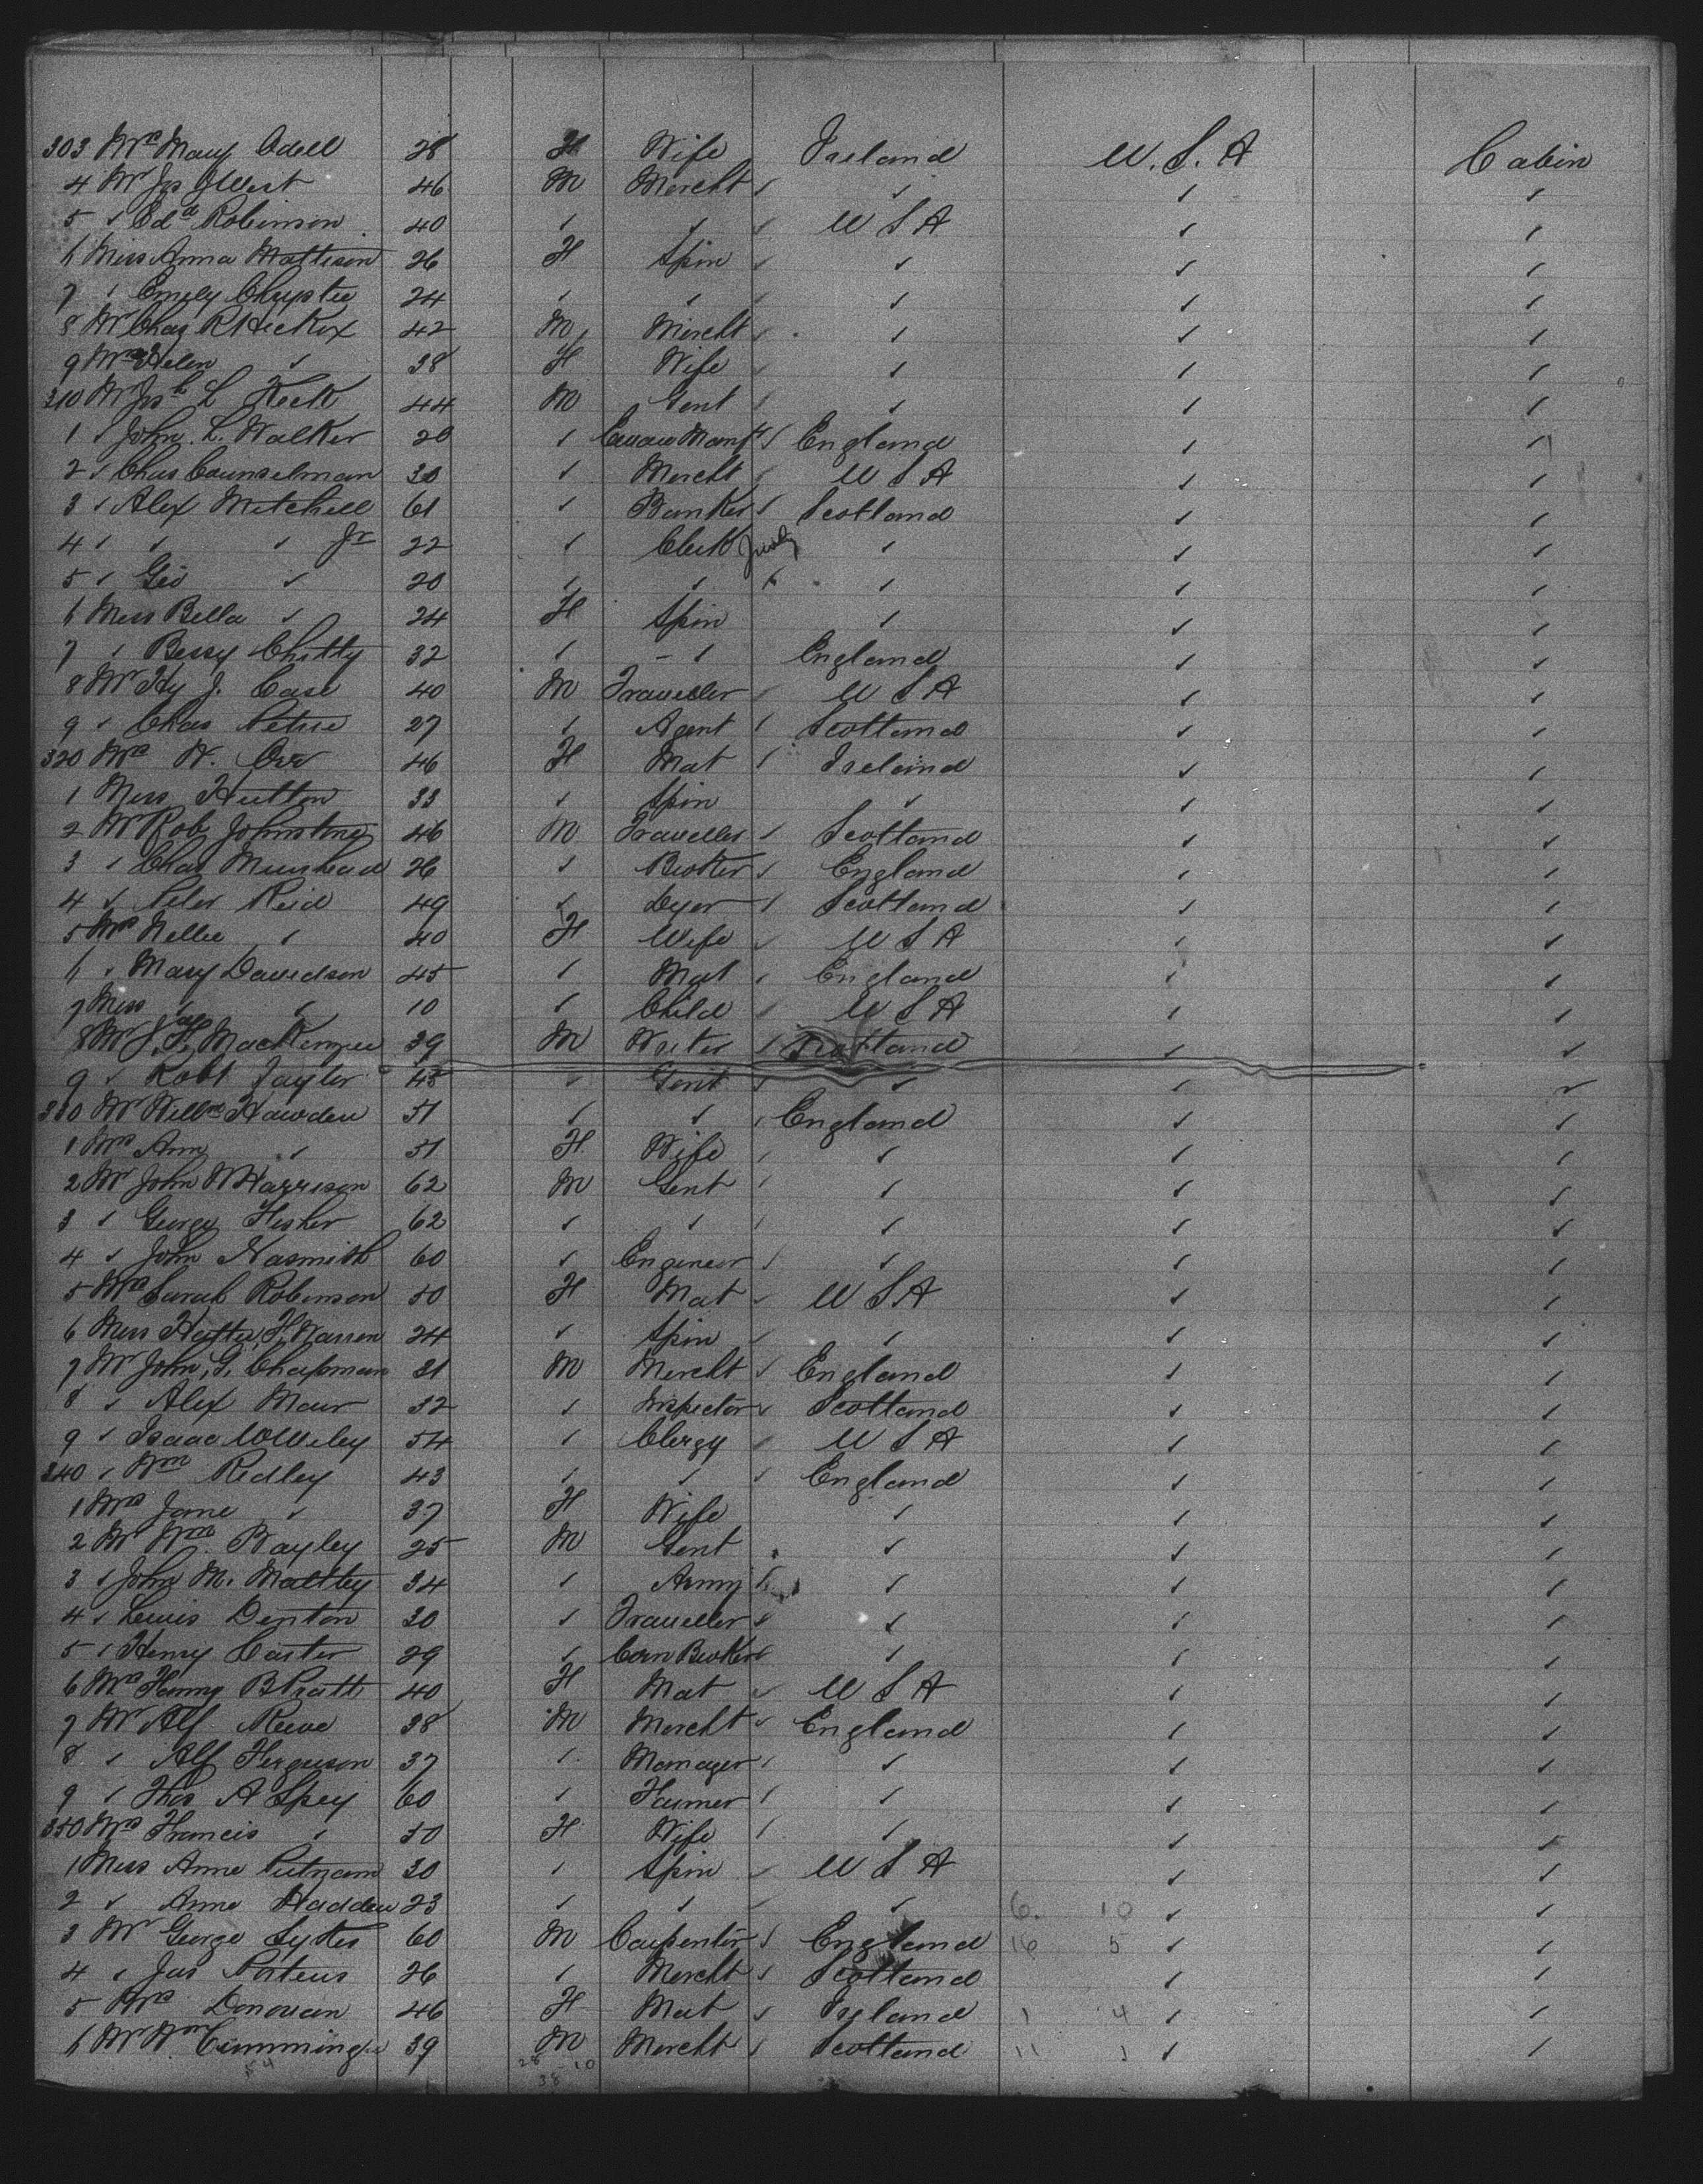 303 Mrs Mary Odell 28 F Wife Ireland U.S.A Cabin
4 Mr Jos West 46 M Mercht ✓ ✓ ✓ ✓
5 ✓ Edd Robinson 40 ✓ ✓ ✓ U S A ✓ ✓
6 Miss Anna Mattison 26 F Spin ✓ ✓ ✓ ✓
7 ✓ Emily Chrystie 24 ✓ ✓ ✓ ✓ ✓ ✓
8 Mr Chas R Hickox 42 M Mercht ✓ ✓ ✓ ✓
9 Mrs Helen ✓ 38 F Wife ✓ ✓ ✓ ✓
310 Mr Josh L Keck 44 M Gent ✓ ✓ ✓ ✓
1 ✓ John L. Walker 20 ✓ Manf ✓ England ✓ ✓
2 ✓ Chas Counselman 30 ✓ Mercht ✓ U S A ✓ ✓
3 ✓ Alex Mitchell 61 ✓ Banker ✓ Scotland ✓ ✓
4 ✓ ✓ ✓ Jr 22 ✓ Clerk ✓ ✓ ✓
5 ✓ Geo ✓ 20 ✓ ✓ ✓ ✓ ✓ ✓
6 Miss Bella ✓ 24 F Spin ✓ ✓ ✓
7 ✓ Bessy Chitty 32 ✓ - ✓ England ✓ ✓
8 Mr Hy J. Case 40 M Traveller ✓ U S A ✓ ✓
9 ✓ Chas Petrie 27 ✓ Agent ✓ Scotland ✓ ✓
320 Mrs W. Orr 46 F Mat ✓ Ireland ✓ ✓
1 Miss Hutton 33 ✓ Spin ✓ ✓ ✓
2 Mr Rob Johnstone 46 M Traveller ✓ Scotland ✓ ✓
3 ✓ Chas Muirhead 26 ✓ Broker ✓ England ✓ ✓
4 ✓ Peter Reid 49 ✓ Dyer ✓ Scotland ✓ ✓
5 Mrs Nellie ✓ 40 F Wife ✓ U S A ✓ ✓
6 ✓ Mary Davidson 45 ✓ Mat ✓ England ✓ ✓
7 Miss ✓ ✓ 10 ✓ Child ✓ U S A ✓ ✓
8 Mr J. MacKenzie 39 M Writer ✓ Scotland ✓ ✓
9 ✓ Robt Taylor 45 ✓ Gent ✓ ✓ ✓ ✓
330 Mr Willm Hawden 51 ✓ ✓ ✓ England ✓ ✓
1 Mrs Ann ✓ 51 F Wife ✓ ✓ ✓ ✓
2 Mr John W Harrison 62 M Gent ✓ ✓ ✓ ✓
3 ✓ George Fisher 62 ✓ ✓ ✓ ✓ ✓ ✓
4 ✓ John Nasmith 60 ✓ Engineer ✓ ✓ ✓ ✓
5 Mrs Sarah Robinson 50 F Mat ✓ U S A ✓ ✓
6 Miss F. Warren 24 ✓ Spin ✓ ✓ ✓ ✓
7 Mr John G. Chapman 31 M Mercht ✓ England ✓ ✓
8 ✓ Alex Mair 32 ✓ Inspector ✓ Scotland ✓ ✓
9 ✓ Isaac W Wiley 54 ✓ Clergy ✓ U S A ✓ ✓
340 ✓ Wm Redley 43 ✓ ✓ ✓ England ✓ ✓
1 Mrs Jane ✓ 37 F Wife ✓ ✓ ✓
2 Mr Wm Bayley 25 M Gent ✓ ✓ ✓
3 ✓ John M. Maltby 34 ✓ Army ✓ ✓ ✓
4 ✓ Lewis Denton 30 ✓ Traveller ✓ ✓ ✓ ✓
5 ✓ Henry Carter 29 ✓ Corn Broker ✓ ✓ ✓ ✓
6 Mrs Fanny B Pratt 40 F Mat ✓ U S A ✓ ✓
7 Mr Alf Reeve 38 M Mercht ✓ England ✓ ✓
8 ✓ Alf Ferguson 37 ✓ Manager ✓ ✓ ✓ ✓
9 ✓ Thos A Spey 60 ✓ Farmer ✓ ✓ ✓ ✓
350 Mrs Francis ✓ 50 F Wife ✓ ✓ ✓ ✓
1 Miss Anne Putnam 30 ✓ Spin ✓ U S A ✓ ✓
2 ✓ Anne Hadden 23 ✓ ✓ ✓ ✓ 6. 10 ✓ ✓
3 Mr George Sykes 60 M Carpenter ✓ England 16 5 ✓ ✓
4 ✓ Jas Porteus 26 ✓ Mercht ✓ Scotland ✓ ✓
5 Mrs Donovan 46 F Mat ✓ Ireland 1 4 ✓ ✓
6 Mr Wm Cumming 39 M Mercht ✓ Scotland 11 1 ✓ ✓
54 28 10
38